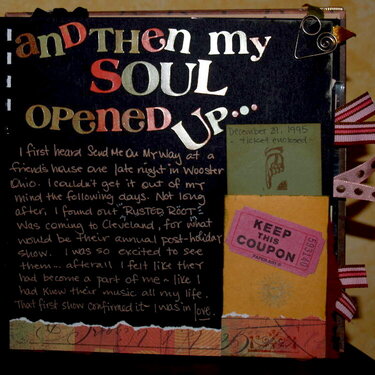 anD THen my
SOUL
opened UP...
I first heard Send Me On My Way at a
friends house one late night in Wooster
Ohio. I couldn't get it out of my
mind the following days. Not long
after, I found out "RUSTED ROOT"
was coming to Cleveland, for what
would be their annual post-holiday
show. I was so excited to see
them... afterall I felt like they
had become a part of me ~ like I
had knew their music all my life.
That first show confirmed it ~ I was in love.
December 21, 1995
- ticket enclosed -
KEEP
THIS
COUPON